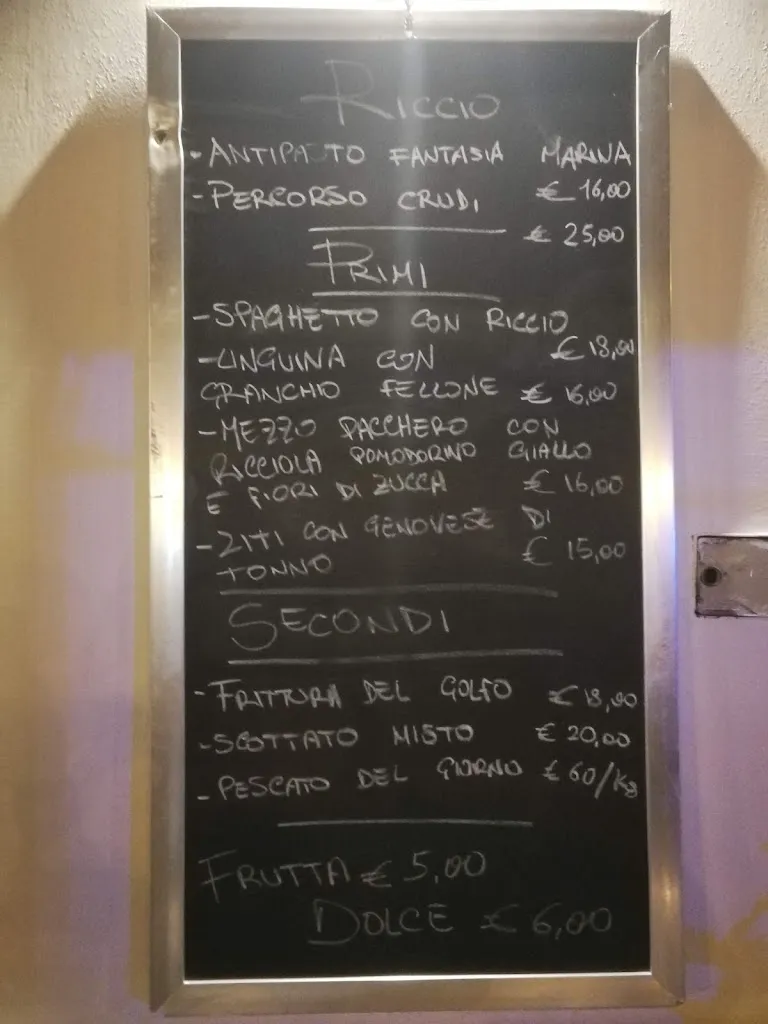 RICCIO
- ANTIPASTO FANTASIA MARINA
€ 16,00
- PERCORSO CRUDI
€ 25,00
PRIMI
- SPAGHETTO CON RICCIO
€ 18,00
- LINGUINA CON
GRANCHIO FELLONE € 16,00
- MEZZO PACCHERO CON
RICCIOLA POMODORINO GIALLO
E FIORI DI ZUCCA € 16,00
- ZITI CON GENOVESE DI
TONNO € 15,00
SECONDI
- FRITTURA DEL GOLFO € 18,00
- SCOTTATO MISTO € 20,00
- PESCATO DEL GIORNO € 60/Kg
FRUTTA € 5,00
DOLCE € 6,00